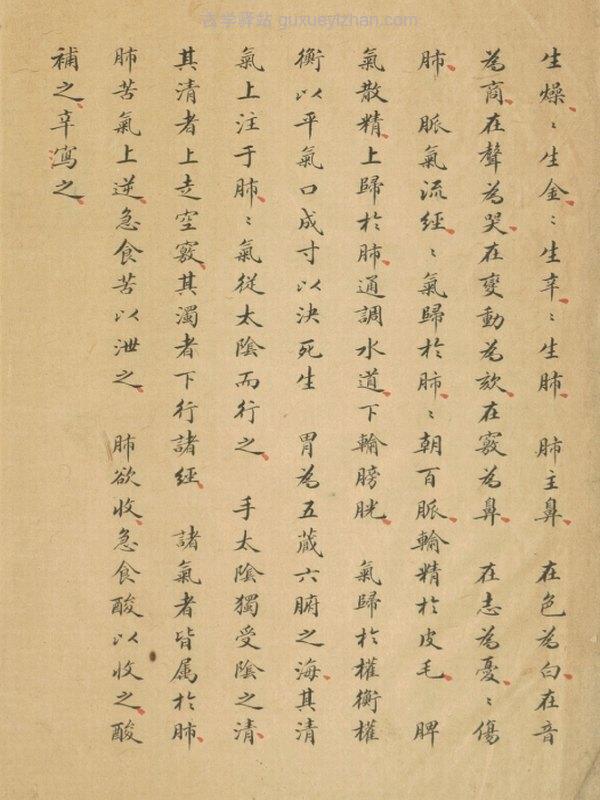 古学驿站 guxueyizhan.com
生燥〻生金〻生辛〻生肺　肺主鼻　在色為白在音
為商在聲為哭在變動為欬在竅為鼻　在志為憂〻傷
肺　脈氣流經〻氣歸於肺〻朝百脈輸精於皮毛　脾
氣散精上歸於肺通調水道下輸膀胱　氣歸於權衡權
衡以平氣口成寸以決死生　胃為五蔵六腑之海其清
氣上注于肺〻氣從太陰而行之　手太陰獨受陰之清
其清者上走空竅其濁者下行諸經　諸氣者皆属於肺
肺苦氣上逆急食苦以泄之　肺欲收急食酸以收之酸
補之辛寫之